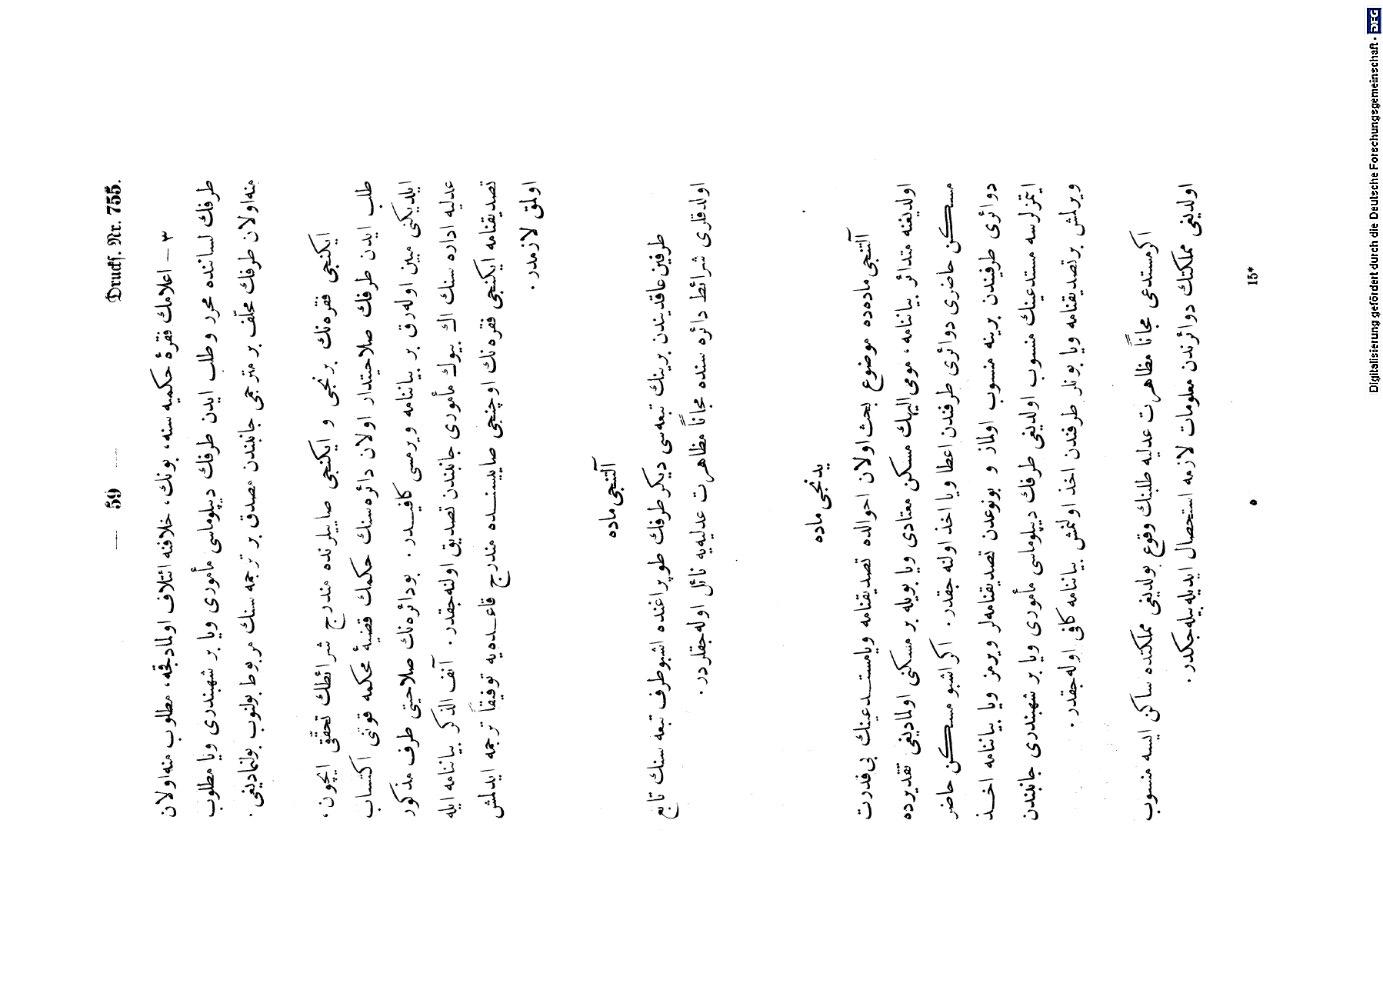 — 59 —
Druckf. Nr. 755.
٣ — اعلامك فقرۀ حكميه سنه، بونك، خلافنه ائتلاف اولمادقجه، مطلوب منه اولان
طرفك لساننده محرر و طلب ايدن طرفك ديپلوماسى مأمورى ويا بر شهبندرى ويا مطلوب
منه اولان طرفك محلّف بر مترجمى جانبندن مصدق بر ترجمه سنك مربوط بولنوب بولنماديغى.
ايكنجى فقره نك برنجى و ايكنجى صاييلرنده مندرج شرائطك تحققى ايچون،
طلب ايدن طرفك صلاحيتدار اولان دائره سنك حكمك قضيۀ محكمه قوتى اكتساب
ايلديكنى مبين اوله رق بر بياننامه ويرمسى كافيدر. بودائره نك صلاحيتى طرف مذكور
عدليه اداره سنك اك بيوك مأمورى جانبندن تصديق اولنه جقدر. آنف الذكر بياننامه ايله
تصديقنامه ايكنجى فقره نك اوچنجى صاييسنده مندرج قاعده يه توفيقاً ترجمه ايدلمش
اولمق لازمدر.
آلتنجى ماده
طرفين عاقديندن برينك تبعه سى ديكر طرفك طوپراغنده اشبو طرف تبعه سنك تابع
اولدقلرى شرائط دائره سنده مجاناً مظاهرت عدليه يه نائل اوله جقلردر.
يدنجى ماده
آلتنجى ماده ده موضوع بحث اولان احوالده تصديقنامه ويامستدعينك بى قدرت
اولديغنه متدائر بياننامه، مومى اليهك مسكن معتادى ويا بويله بر مسكنى اولماديغى تقديرده
مسكن حاضرى دوائرى طرفندن اعطا ويا اخذ اولنه جقدر. اكر اشبو مسكن حاضر
دوائرى طرفيندن برينه منسوب اولماز و بونوعدن تصديقنامه لر ويرمز ويا بياننامه اخذ
ايتمزلرسه مستدعينك منسوب اولديغى طرفك ديپلوماسى مأمورى ويا بر شهبندرى جانبندن
ويرلمش بر تصديقنامه ويا بونلر طرفندن اخذ اولنمش بياننامه كافى اوله جقدر.
اكر مستدعى مجاناً مظاهرت عدليه طلبنك وقوع بولديغى مملكتده ساكن ايسه منسوب
اولديغى مملكتك دوائرندن معلومات لازمه استحصال ايديله بيله جكدر.
٥
15*
Digitalisierung gefördert durch die Deutsche Forschungsgemeinschaft - DFG